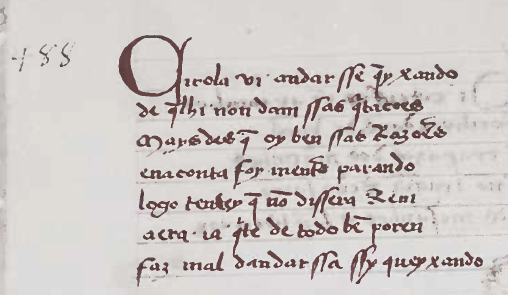 488
Citola vi andar sse q̄yxando
de q̄lhi non dam ssas q̄tacoēs
Mays des q̄ oy ben ssas Razoēs
enaconta foy ment̄s parando
logo teuey q̄ nō dissera Rem
aera ia q̄te de todo bē poren
faz mal dandar ssa ssy queyxando